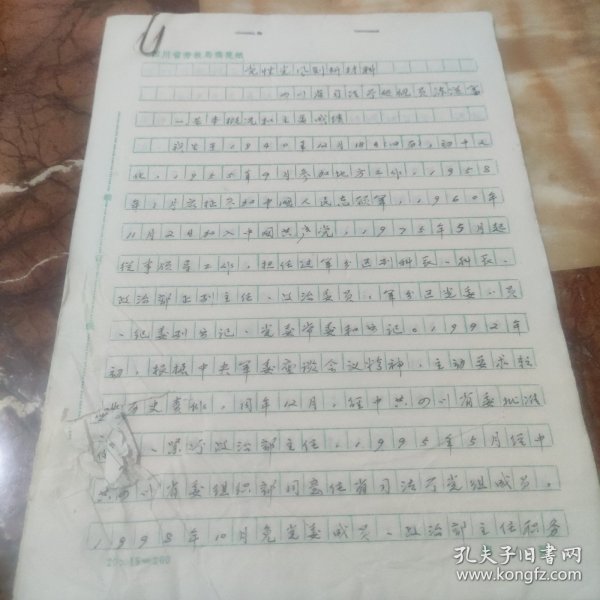 四川省劳改局稿笺纸
党性党风剖析材料
四川省司法厅
一、基本概况和主要成绩
我生于1940年12月18日，初中文
化，1955年9月参加地方工作，1958
年1月应征参加中国人民志愿军，1960年
11月2日加入中国共产党，1975年5月起
从事领导工作，担任过军分区副科长、科长、
政治部副主任、政治委员，军分区党委委员
、纪委副书记、党委常委和书记。1992年
初，根据中央军委座谈会议精神，主动要求转
业，同年12月，经中共四川省委批准
政治部主任，1995年5月经中
共四川省委组织部同意任省司法厅党组成员。
1998年10月免党委成员、政治部主任职务
20×15=300
孔夫子旧书网
www.kongfz.com